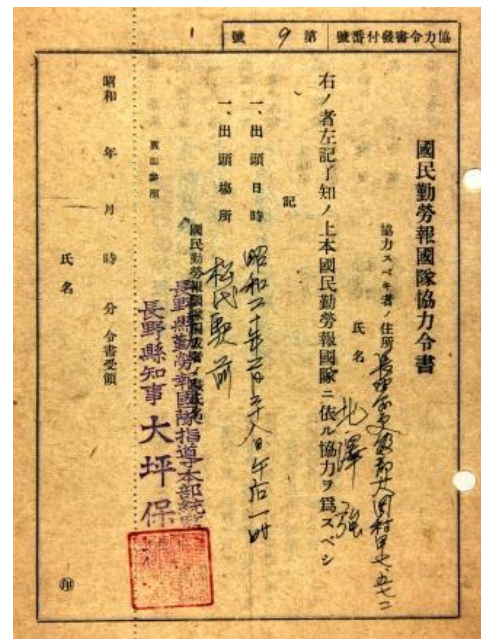 協力令書發付番號 第 9 號
國民勤勞報國隊協力令書
協力スベキ者ノ住所 長野縣更級郡大岡村甲七、五七二
氏名 北澤 強
右ノ者左記了知ノ上本國民勤勞報國隊ニ依ル協力ヲ爲スベシ
記
一、出頭日時 昭和二十年三月二十八日午后一時
一、出頭場所 松代驛前
國民勤勞報國隊
長野縣勤勞報國隊指導本部統監
長野縣知事 大坪保
裏面參照
昭和 年 月 時 分 令書受領
氏名
㊞